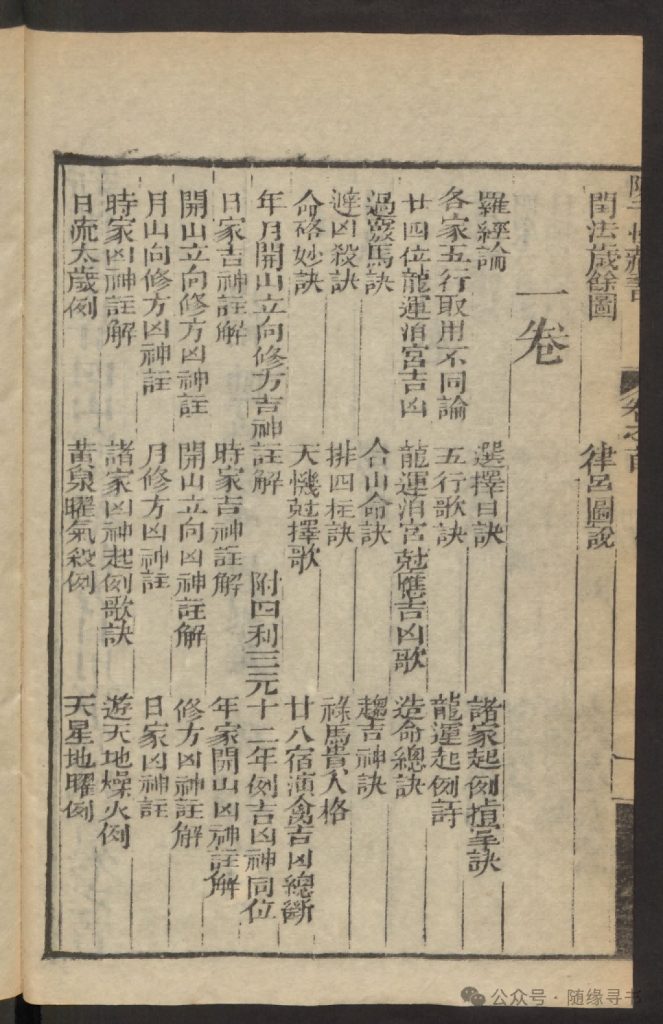 閏法歲餘圖 律呂圖說
一卷
羅經論 選擇日訣 諸家起例掌訣
各家五行取用不同論 五行歌訣 龍運起例詩
廿四位龍運泊宮吉凶 龍運泊宮尅應吉凶歌 造命總訣
過發馬訣 合山命訣 趨吉神訣
凶殺訣 排四柱訣 祿馬貴人格
命妙訣 天機尅擇歌 廿八宿演禽吉凶總斷
年月開山立向修方吉神註解 附四利三元十二年例吉凶神同位
日家吉神註解 時家吉神註解 年家開山凶神註解
開山立向修方凶神註 開山立向凶神註解 修方凶神註解
月山向修方凶神註 月修方凶神註 日家凶神註
時家凶神註解 諸家凶神起例歌訣 遊天地燥火例
日流太歲例 黃泉曜氣殺例 天星地曜例
公众号·随缘寻书